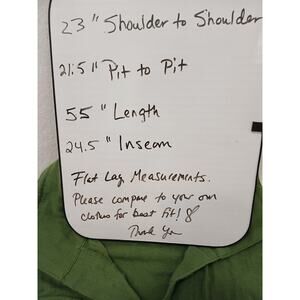 23" Shoulder to Shoulder
21.5" Pit to Pit
55" Length
24.5" Inseam
Flat Lay Measurements.
Please compare to your own
clothes for best fit!
Thank You